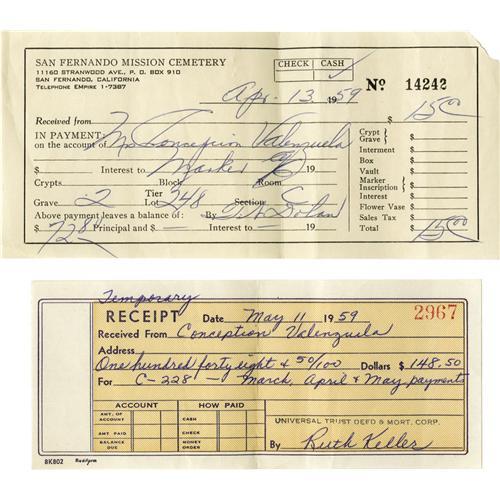 SAN FERNANDO MISSION CEMETERY
11160 STRANWOOD AVE., P. O. BOX 910
SAN FERNANDO, CALIFORNIA
TELEPHONE EMPIRE 1-7387
CHECK CASH
Nº 14242
Apr. 13 1959
Received from $ 15 00
IN PAYMENT: Mrs Conception Valenzuela
on the account of
Crypt
Grave $
Interment $
Interest to Marker 19
Box $
Vault $
Crypts Block Room
Marker
Inscription $
Grave 2 Tier Lot 248 Section C
Interest $
Flower Vase $
Above payment leaves a balance of: By
Sales Tax $
$ 72 84 Principal and $ — Interest to — 19
Total $ 15 00
Temporary
RECEIPT Date May 11 1959 2967
Received From Conception Valenzuela
Address
One hundred forty eight & 50/100 Dollars $ 148.50
For C-228 — March, April & May payments
ACCOUNT HOW PAID
AMT. OF ACCOUNT CASH
AMT PAID CHECK
BALANCE DUE MONEY ORDER
UNIVERSAL TRUST DEED & MORT. CORP.
By Ruth Keller
8K802 Rediform